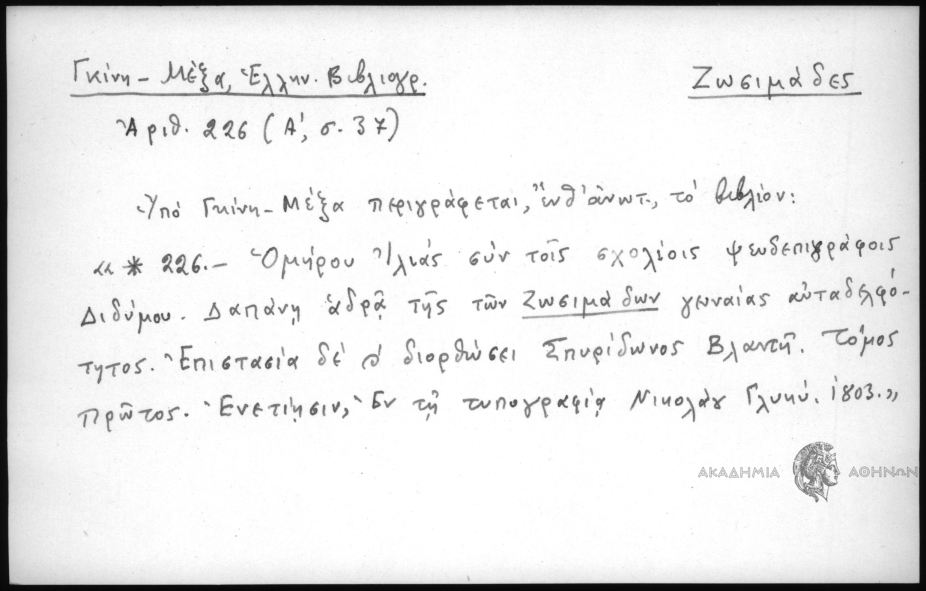 Γκίνη - Μέξα, Ἑλλην. Βιβλιογρ.
Ζωσιμάδες
Ἀριθ. 226 (Α', σ. 37)
Ὑπό Γκίνη - Μέξα περιγράφεται, ἔνθ' ἀνωτ., τό βιβλίον:
«* 226.- Ὁμήρου Ἰλιάς σύν τοῖς σχολίοις ψευδεπιγράφοις
Διδύμου. Δαπάνῃ ἁδρᾷ τῆς τῶν Ζωσιμάδων γενναίας αὐταδελφό-
τητος. Ἐπιστασίᾳ δέ διορθώσει Σπυρίδωνος Βλαντῆ. Τόμος
πρῶτος. Ἐνετίῃσιν, Ἐν τῇ τυπογραφίᾳ Νικολάῳ Γλυκύ. 1803.»
ΑΚΑΔΗΜΙΑ ΑΘΗΝΩΝ